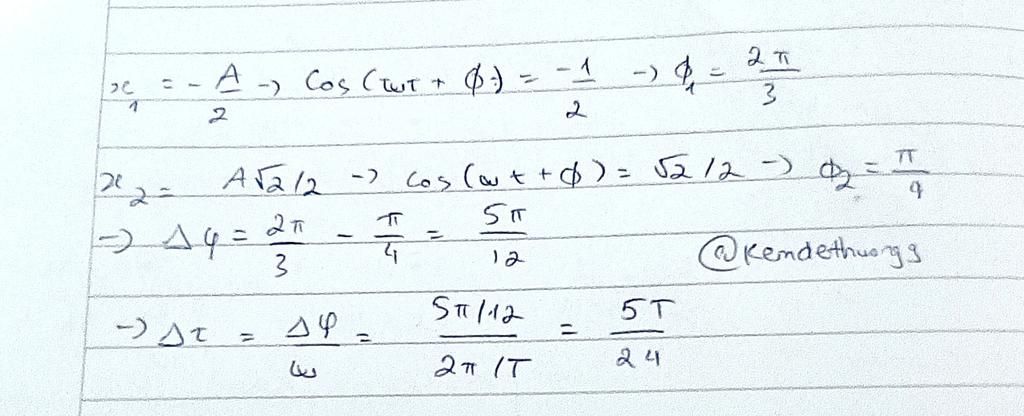 x₁ = -A/2 -> Cos (ωt + φ) = -1/2 -> φ₁ = 2π/3
x₂ = A√2/2 -> cos(ωt + φ) = √2/2 -> φ₂ = π/4
-> Δφ = 2π/3 - π/4 = 5π/12
@Kendethuongs
-> Δt = Δφ/ω = 5π/12 / 2π/T = 5T/24